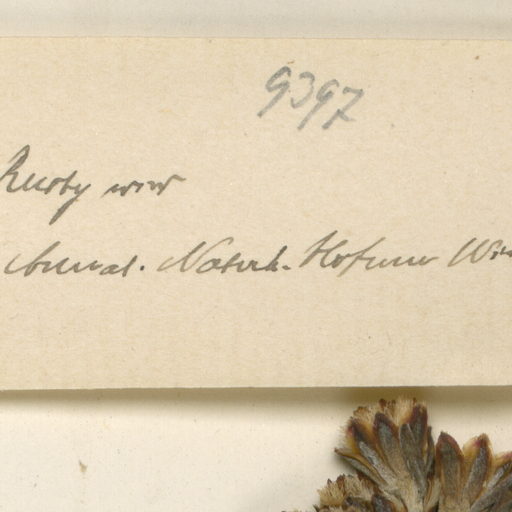 9397
Rusby
Annal. Naturh. Hofmus Wi